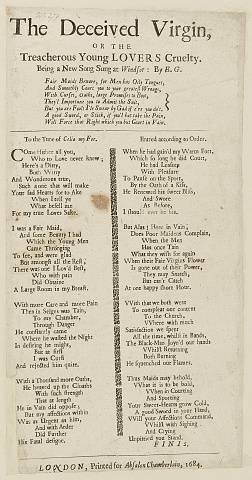 The Deceived Virgin,
OR THE
Treacherous Young LOVERS Cruelty.
Being a New Song Sung at Windsor: By E. G.
Fair Maids Beware, for Men has Oily Tongues,
And Smoothly Court you to your greatest Wrongs,
With Curses, Oaths, large Promises to Boot,
They'l Importune you to Admit the Suit,
But you are Fools I'le Swear by God if e're you do't.
A good Sword, or Stick, if you'l but take the Pain,
Will Force that Right which you but Court in Vain.
To the Tune of Celia my
Entred according to Order.
COme hither all you,
Who to Love never knew,
Here's a Ditty,
Both Witty
And Wonderous true,
Such a one that will make
Your sad Hearts for to Ake
When I tell ye
What befell me
For my true Loves Sake.
I was a Fair Maid,
And some Beauty I had
Which the Young Men
Came Thronging
To see, and were glad
But amongst all the rest,
There was one I Lov'd Best,
Who with pain
Did Obtaine
A Large Room in my Breast.
With more Care and more Pain
Then in Seiges was Tain,
To my Chamber,
Through Danger
He constantly came
Where he waited the Night
In desiring he might,
But at first
I was Curst
And rejected him quite.
With a Thousand more Oaths,
He heated up the Cloaths
With such strength
That at length
He in Vain did oppose;
But my affections within
Was as Urgent as him,
And with Arder
Did Further
His Fatal designe.
When he had gain'd my Warm Fort,
Which so long he did Court,
He had Leasure
With Pleasure
To Pastle on the Sport,
By the Oath of a Kiss,
He Renewed his sweet Bliss,
And Swore
As Before,
I should ever be his.
But Alas! How in Vain,
Does Poor Maidens Complain,
When the Men
Has once Tain
What they wish for again
When their Fair Virgins Flower
Is gone out of their Power,
They may Snatch,
But can't Catch
At one happy short Hour.
VVith that we both went
To compleat our content
To the Church,
VVhere with much
Satisfaction we spent
All the time, wealth in Bands,
The Black-Man Joyn'd our hands
VVhilst Renewing
Both Burning
He Squenched our Flames.
Thus Maids may behold,
VVhat it is to be bold,
VVhen in Courting
And Sporting
Your Sweet-Hearts grow Cold,
A good Sword in your Hand,
Will your Affections Command,
VVhilst with Sighing
And Crying
Unpitied you Stand.
FINIS.
LONDON, Printed for Absalon Chamberlain, 1684.